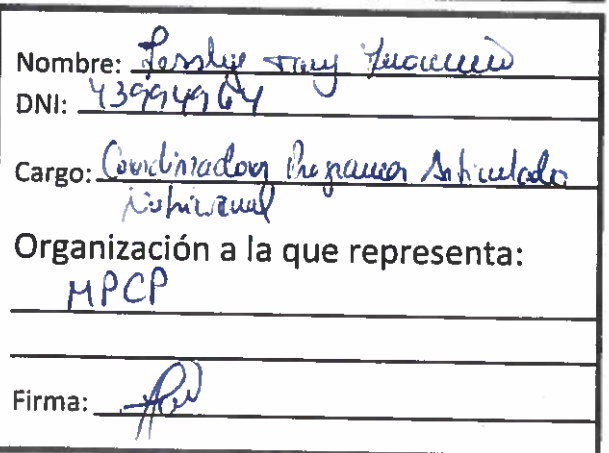 Nombre:
DNI: 43994964
Cargo: Coordinadora Programa Articulado
Nutricional
Organización a la que representa:
MPCP
Firma: